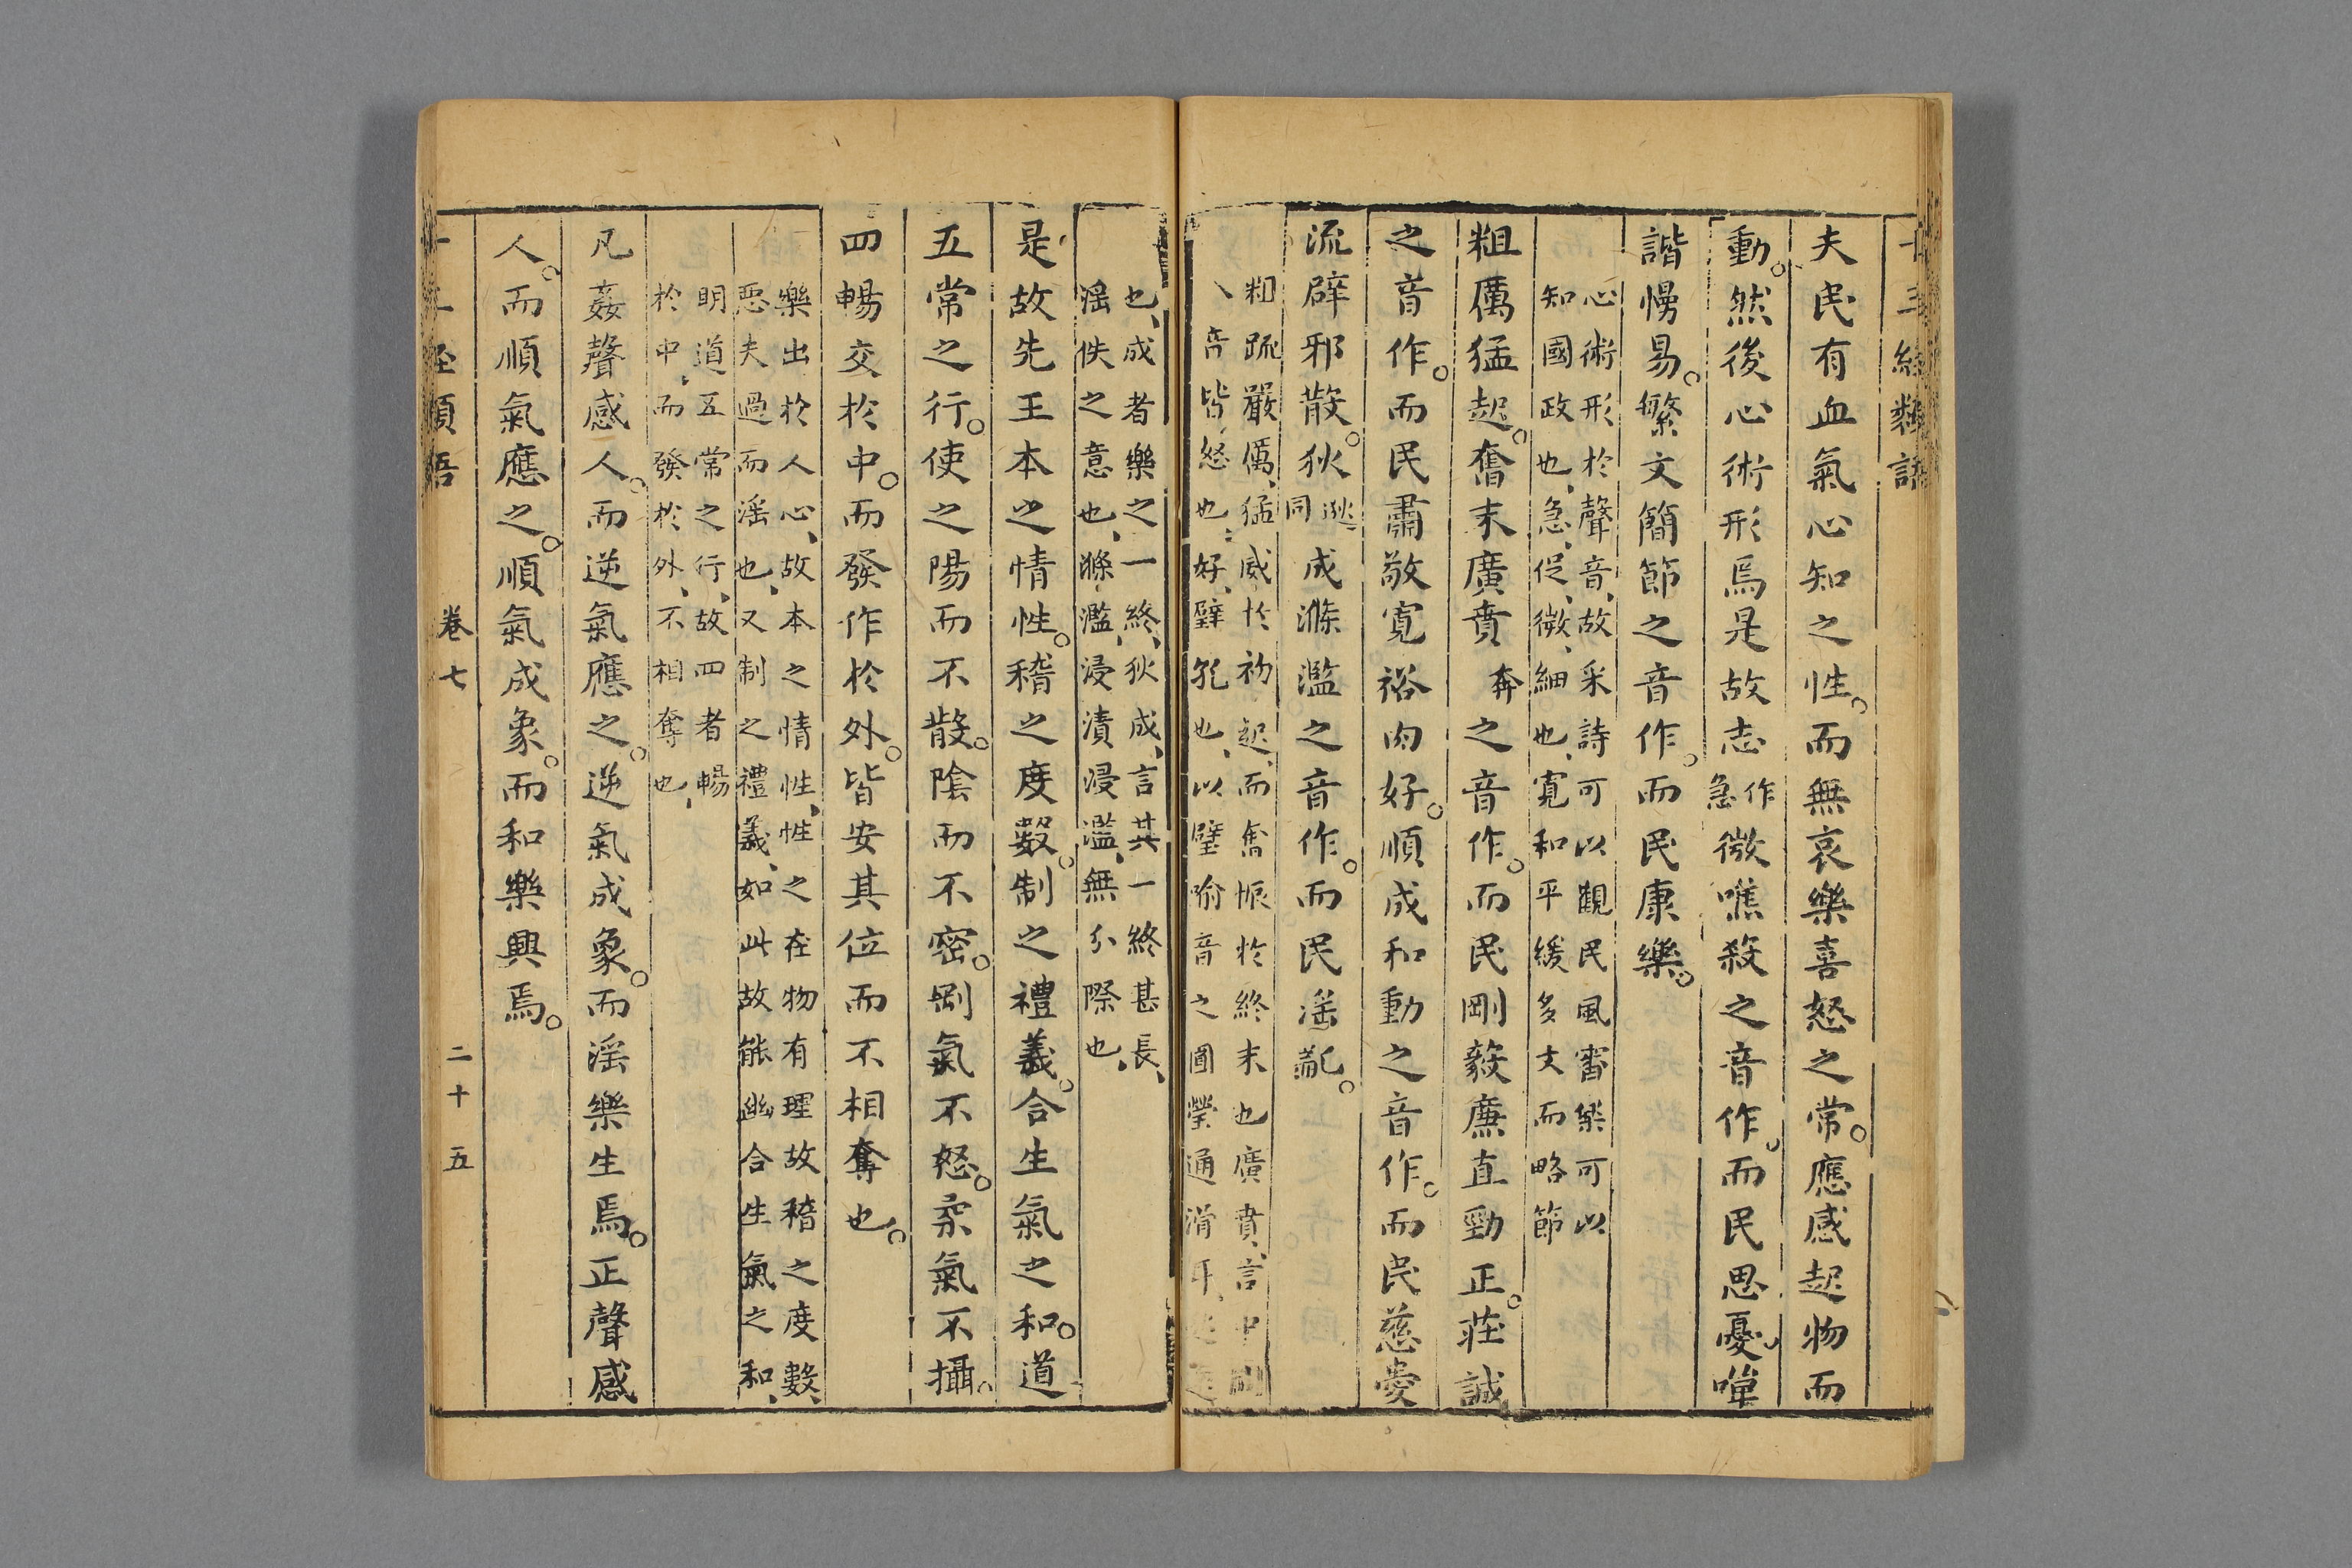 十三經類語
夫民有血氣心知之性。而無哀樂喜怒之常。應感起物而
動。然後心術形焉是故志
作
急
微噍殺之音作。而民思憂。嘽
諧慢易。繁文簡節之音作。而民康樂。
心術形於聲音、故采詩可以觀民風審樂可以
知國政也、急、促、微、細也、寬和平緩多文而略節
粗厲猛起。奮末廣賁
奔
之音作。而民剛毅廉直勁正。莊誠
之音作。而民肅敬寬裕肉好。順成和動之音作。而民慈愛
流辟邪散。狄
逖
同
成滌濫之音作。而民淫亂。
粗疏嚴厲、猛威於初起、而奮振於終末也廣賁、言中
音皆怒也、好、璧孔也、以璧喻音之圓瑩通滑
也、成者樂之一終、狄成、言其一終甚長、
淫佚之意也、滌濫、浸漬浸濫、無分際也、
是故先王本之情性。稽之度數。制之禮義。合生氣之和。道
五常之行。使之陽而不散。陰而不密。剛氣不怒。柔氣不攝。
四暢交於中。而發作於外。皆安其位而不相奪也。
樂出於人心、故本之情性、性之在物有理故稽之度數、
惡夫過而淫也、又制之禮義、如此故能幽合生氣之和、
明道五常之行、故四者暢
於中、而發於外、不相奪也、
凡姦聲感人。而逆氣應之。逆氣成象。而淫樂生焉。正聲感
人。而順氣應之。順氣成象。而和樂興焉。
卷七
二十五